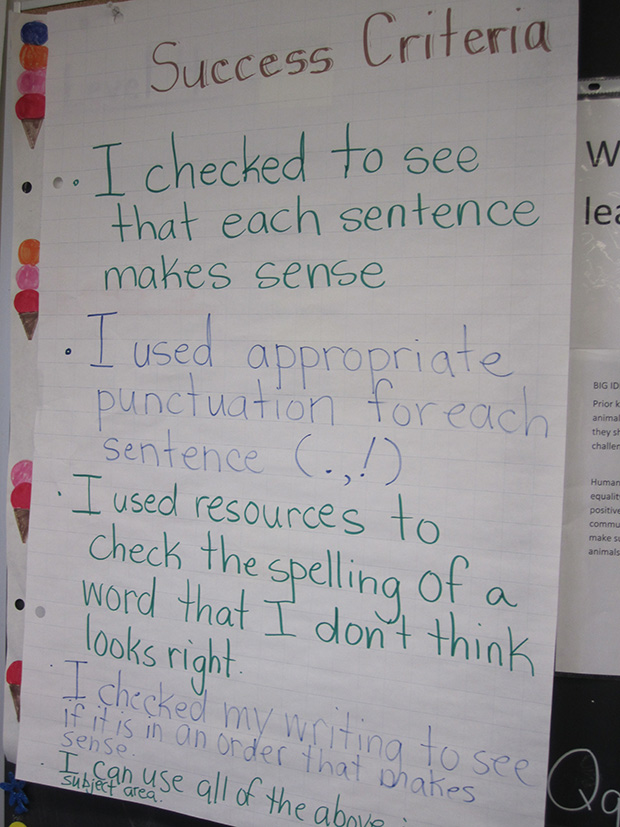 Success Criteria
. I checked to see
that each sentence
makes sense
. I used appropriate
punctuation for each
sentence (.,!)
. I used resources to
check the spelling of a
word that I don't think
looks right.
. I checked my writing to see
if it is in an order that makes
sense.
. I can use all of the above
subject area.
W
lea
BIG ID
Prior k
animal
they sh
challen
Human
equalit
positive
commu
make su
animals
Qq